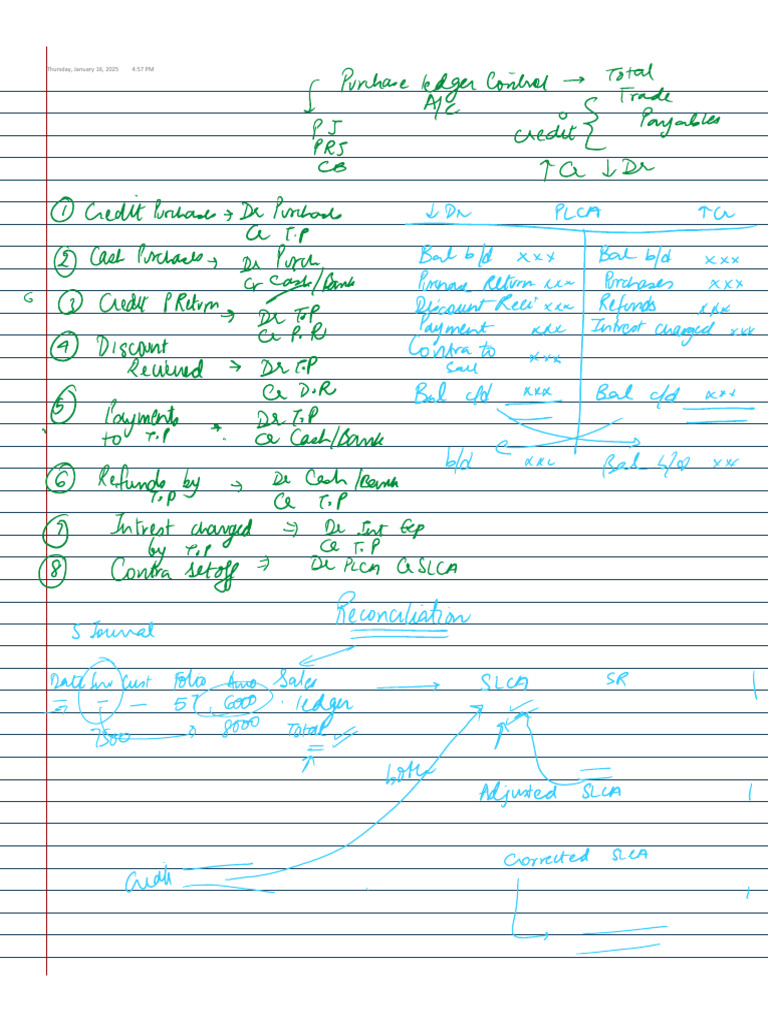 Thursday, January 16, 2025 4:57 PM
Purchase ledger Control → Total
A/C Trade
Payables
P J
PRJ
CB
Credit
↑ Cr ↓ Dr
① Credit Purchases → Dr Purchases
Cr T.P
② Cash Purchases → Dr Purch
Cr Cash/Bank
③ Credit P Return → Dr T.P
Cr P.R
④ Discount
Received → Dr T.P
Cr D.R
⑤ Payments Dr T.P
to T.P → Cr Cash/Bank
⑥ Refunds by → Dr Cash/Bank
T.P Cr T.P
⑦ Intrest charged ⇒ Dr Int Exp
by T.P Cr T.P
⑧ Contra setoff ⇒ Dr PLCA Cr SLCA
↓ Dr PLCA ↑ Cr
Bal b/d xxx Bal b/d xxx
Purchase Return xxx Purchases xxx
Discount Recei xxx Refunds xxx
Payment xxx Intrest charged xxx
Contra to xxx
Bal c/d xxx Bal c/d xxx
b/d xxx Bal b/d xxx
Reconciliation
S Journal
Date Inv Cust Folio Amo Sales → SLCA SR
57 6000 ledger
7500 → 8000 Total
both
Adjusted SLCA
Corrected SLCA
Credit